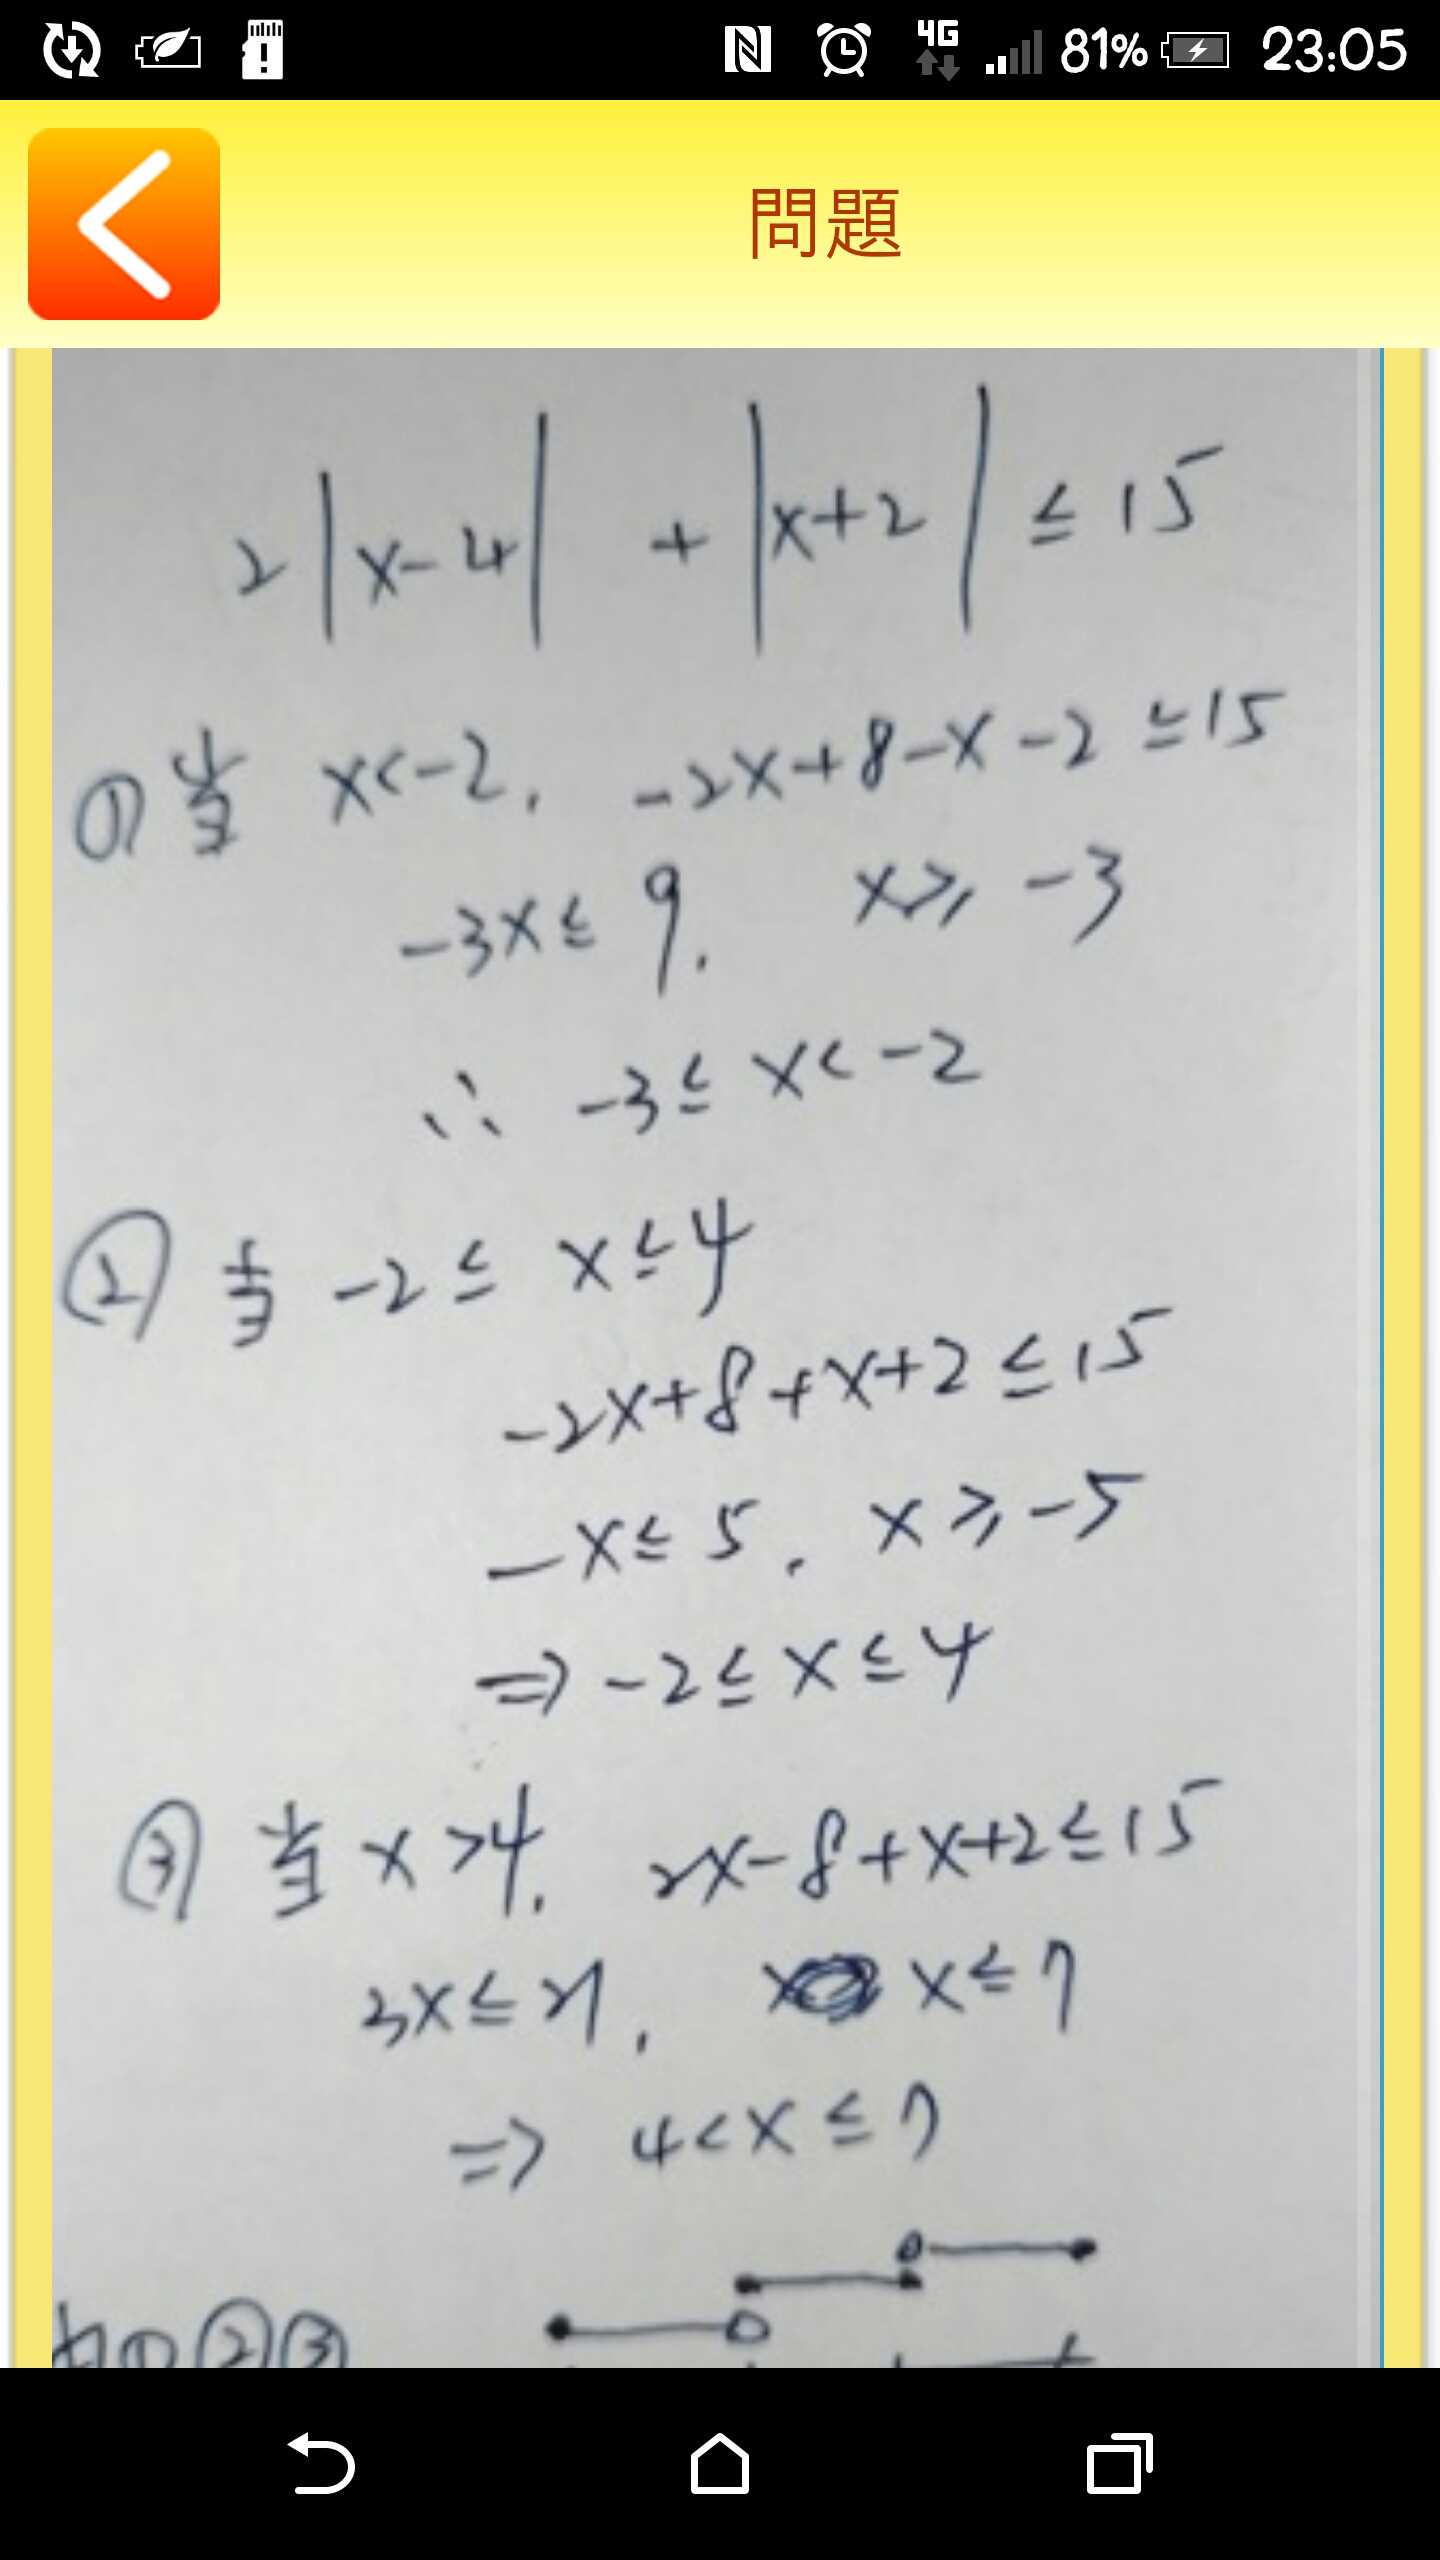 4G 81% 23:05
問題
2|x-4| + |x+2| ≤ 15
① 当 x<-2, -2x+8-x-2 ≤15
-3x≤ 9. x≥ -3
∴ -3≤ x<-2
② 当 -2≤ x≤4
-2x+8+x+2≤15
-x≤5. x≥-5
⇒ -2≤x≤4
③ 当 x>4. 2x-8+x+2≤15
3x≤21. x≤7
⇒ 4<x≤7
由①②③